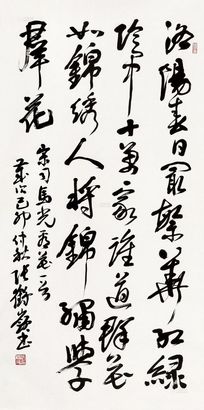 洛陽春日最繁華紅綠
陰中十萬家誰道群花
如錦綉人將錦繡學
羣花
宋司馬光看花
歲次己卯仲秋張書